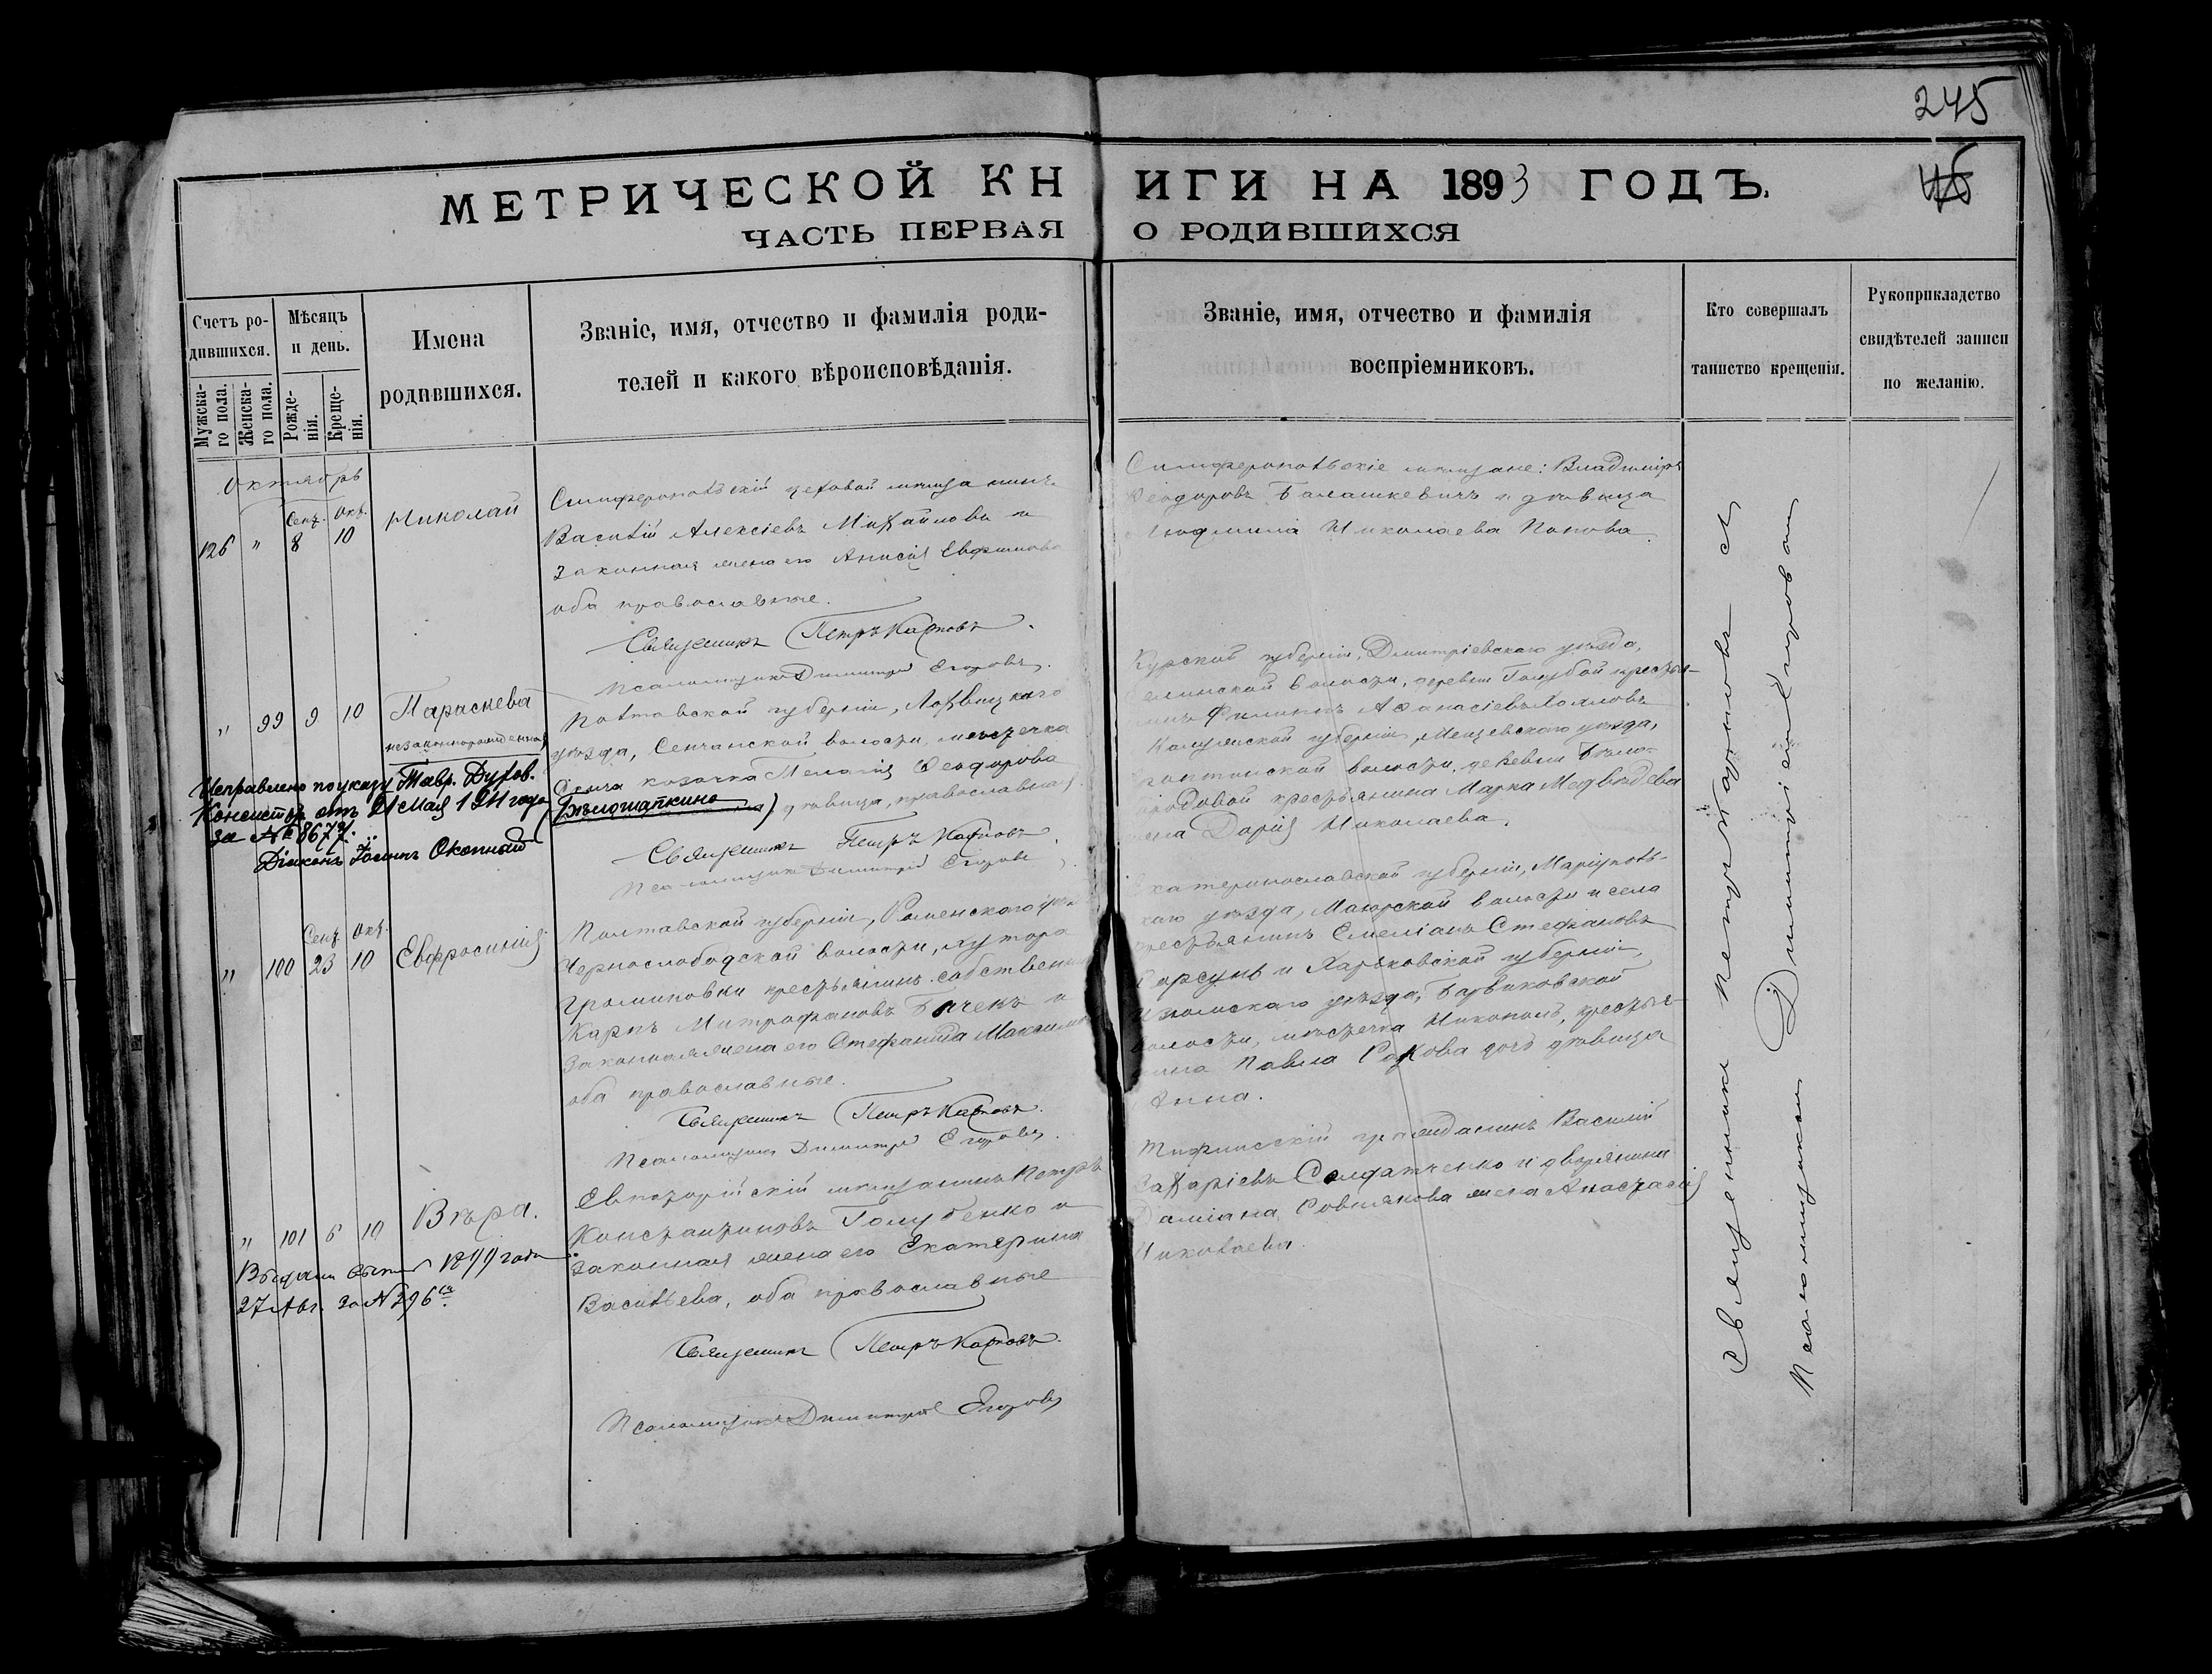 245
МЕТРИЧЕСКОЙ КНИГИ НА 1893 ГОДЪ.
ЧАСТЬ ПЕРВАЯ О РОДИВШИХСЯ
Счетъ ро-
дившихся.
Мужска-
го пола.
Женска-
го пола.
Мѣсяцъ
и день.
Рожде-
нія.
Креще-
нія.
Имена
родившихся.
Званіе, имя, отчество и фамилія роди-
телей и какого вѣроисповѣданія.
Званіе, имя, отчество и фамилія
воспріемниковъ.
Кто совершалъ
таинство крещенія.
Рукоприкладство
свидѣтелей записи
по желанію.
Октябрь
Сент. Окт.
126 " 8 10
Николай
Симферопольскій цеховой мѣщанинъ
Василій Алексіевъ Михайловъ и
законная жена его Анисія Евфимова
оба православные.
Священникъ Петръ Карповъ.
Псаломщикъ Димитрій Егоровъ.
Симферопольскіе мѣщане: Владиміръ
Ѳеодоровъ Балашкевичъ и дѣвица
Людмила Николаева Попова.
" 99 9 10
Параскева
незаконнорожденная
Полтавской губерніи, Лохвицкаго
уѣзда, Сенчанской волости, мѣстечка
Сенчи козачка Мелагія Ѳеодорова
(Бѣлошапкина) дѣвица, православная.
Священникъ Петръ Карповъ.
Псаломщикъ Димитрій Егоровъ.
Исправлено по указу Тавр. Духов.
Консисторіи отъ 21 Мая 1911 года
за № 8677.
Діаконъ Іоаннъ Окопный
Курской губерніи, Дмитріевскаго уѣзда,
волости, деревни Голубой крестья-
нинъ Филиппъ Аѳанасіевъ
Калужской губерніи, Мещевскаго уѣзда,
волости, деревни
крестьянина Марка Медвѣдева
жена Дарія Николаева.
Сент. Окт.
" 100 23 10
Евфросинія
Полтавской губерніи, Роменскаго уѣз
Чернослободской волости, хутора
крестьянинъ собственн
Карпъ Митрофановъ и
законная жена его Стефанида Максимо
оба православные.
Священникъ Петръ Карповъ.
Псаломщикъ Димитрій Егоровъ.
Екатеринославской губерніи, Маріуполь-
скаго уѣзда, Маіорской волости и села
крестьянинъ Емеліанъ Стефановъ
Корсунь и Харьковской губерніи,
Изюмскаго уѣзда, Барвиковской
волости, мѣстечка Никополь, крестья-
нина Павла дочь дѣвица
Анна.
" 101 6 10
Вѣра.
Евпаторійскій мѣщанинъ Петръ
Константиновъ Голубенко и
законная жена его Екатерина
Васильева, оба православные
Священникъ Петръ Карповъ.
Псаломщикъ Димитрій Егоровъ
1899 года
27 Авг. за № 296
Тифлисскій гражданинъ Василій
Захаріевъ Солдатченко и дворянина
Даміана жена Анастасія
Николаева.
Священникъ Петръ Карповъ
Псаломщикъ Димитрій Егоровъ